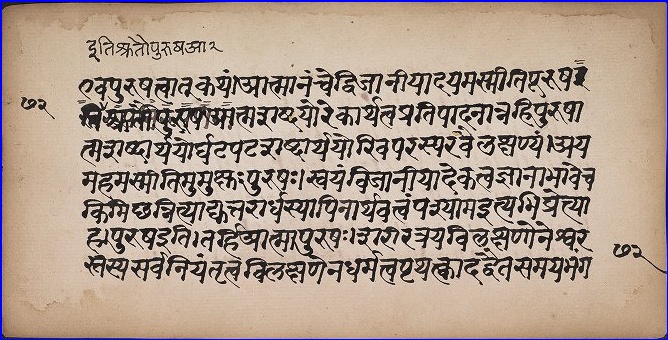 इतिश्रुतौपुरुषआर
एवपुरुषत्वात्कथं।आत्मानंचेद्विजानीयादयमस्मीतिपुरुषइ
७२
तिश्रुतौपुरुषआत्मशब्दयोरेकार्थत्वप्रतिपादनान्नहिपुरुषा
त्मशब्दार्थयोर्घटपटशब्दार्थयोरिवपरस्परवैलक्षण्यं।अय
महमस्मीतिमुमुक्षुःपुरुषः।स्वयंविजानीयादेकत्वज्ञानाभावेच
किमिछन्नित्याद्युत्तरार्धस्यापिनार्थवत्वंपश्यामइत्यभिप्रेत्या
ह।पुरुषइति।तर्हिआत्मापुरुषः।शरीरत्रयविलक्षणोनेश्वर
७२
स्तस्यसर्वनियंतृत्वविलक्षणेनधर्मत्वपृथत्कादद्वैतसमयभंग